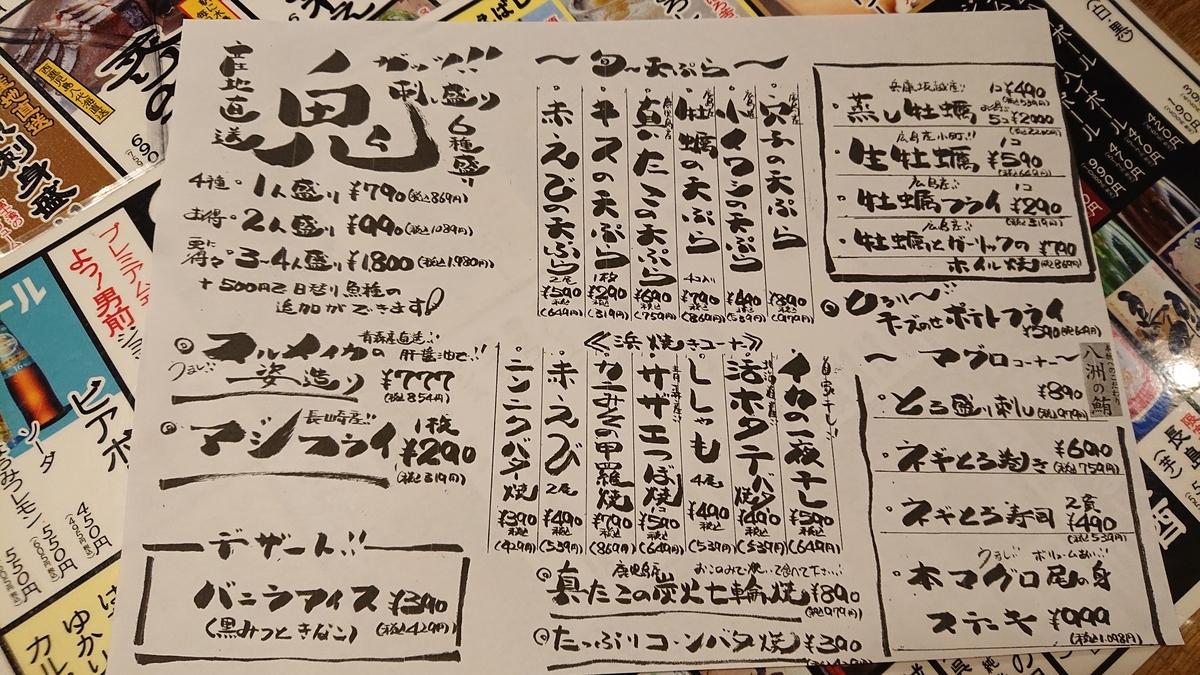 産地直送
鬼
ガッツ!!
刺し盛り
6種盛
4種 1人盛り ¥790(税込869円)
お得 2人盛り ¥990(税込1089円)
更に得々 3〜4人盛り ¥1800(税込1,980円)
+500円で日替り魚種の
追加ができます!
青森産直送!!
スルメイカの肝醤油で!!
うまし!! 姿造り ¥777
(税込854円)
長崎産!!
アジフライ 1枚 ¥290
(税込319円)
デザート!!
バニラアイス ¥390
(黒みつときなこ) (税込429円)
〜旬の天ぷら〜
穴子の天ぷら ¥890 (979円)
小イワシの天ぷら ¥490 税込 (539円)
牡蠣の天ぷら 4コ入り ¥790 税込 (869円)
真たこの天ぷら ¥690 税込 (759円)
キスの天ぷら 1枚 ¥290 税込 (319円)
赤えびの天ぷら 2尾 ¥590 税込 (649円)
≪浜焼きコーナー≫
自家干し!!
イカの一夜干し ¥590 税込 (649円)
北海道産
活ホタテバター焼 ¥490 税込 (539円)
ししゃも 4尾 ¥490 税込 (539円)
サザエつぼ焼 1コ ¥590 税込 (649円)
カニみその甲羅焼 ¥790 税込 (869円)
赤えび 2尾 ¥490 税込 (539円)
ニンニクバター焼 ¥390 税込 (429円)
鹿児島産 お好みで焼いて食べて下さい!!
真たこの炭火七輪焼 ¥890
(税込979円)
たっぷりコーンバター焼 ¥390
兵庫坂越産!! 1コ ¥490
(税込539円)
蒸し牡蠣 5コ ¥2000
(税込2200円)
広島産小町!! 1コ
生牡蠣 ¥590
(税込649円)
広島産!! 1コ
牡蠣フライ ¥290
(税込319円)
広島産!!
牡蠣とガーリックの ¥790
ホイル焼 (税込869円)
とろり〜!!
チーズのせポテトフライ
¥590(税込649円)
〜マグロコーナー〜
八洲の鮪
とろ盛り刺し ¥890
(税込979円)
ネギとろ巻き ¥690
(税込759円)
ネギとろ寿司 2貫 ¥490
(税込539円)
うまし!! ボリュームあり!!
本マグロ尾の身
ステーキ ¥999
(税込1,098円)
690
プレミアム
よっ!男前
ビアボ
ソーダ
450円
(495円税込)
550円
(605円税込)
550円
刺身盛
(白・黒)